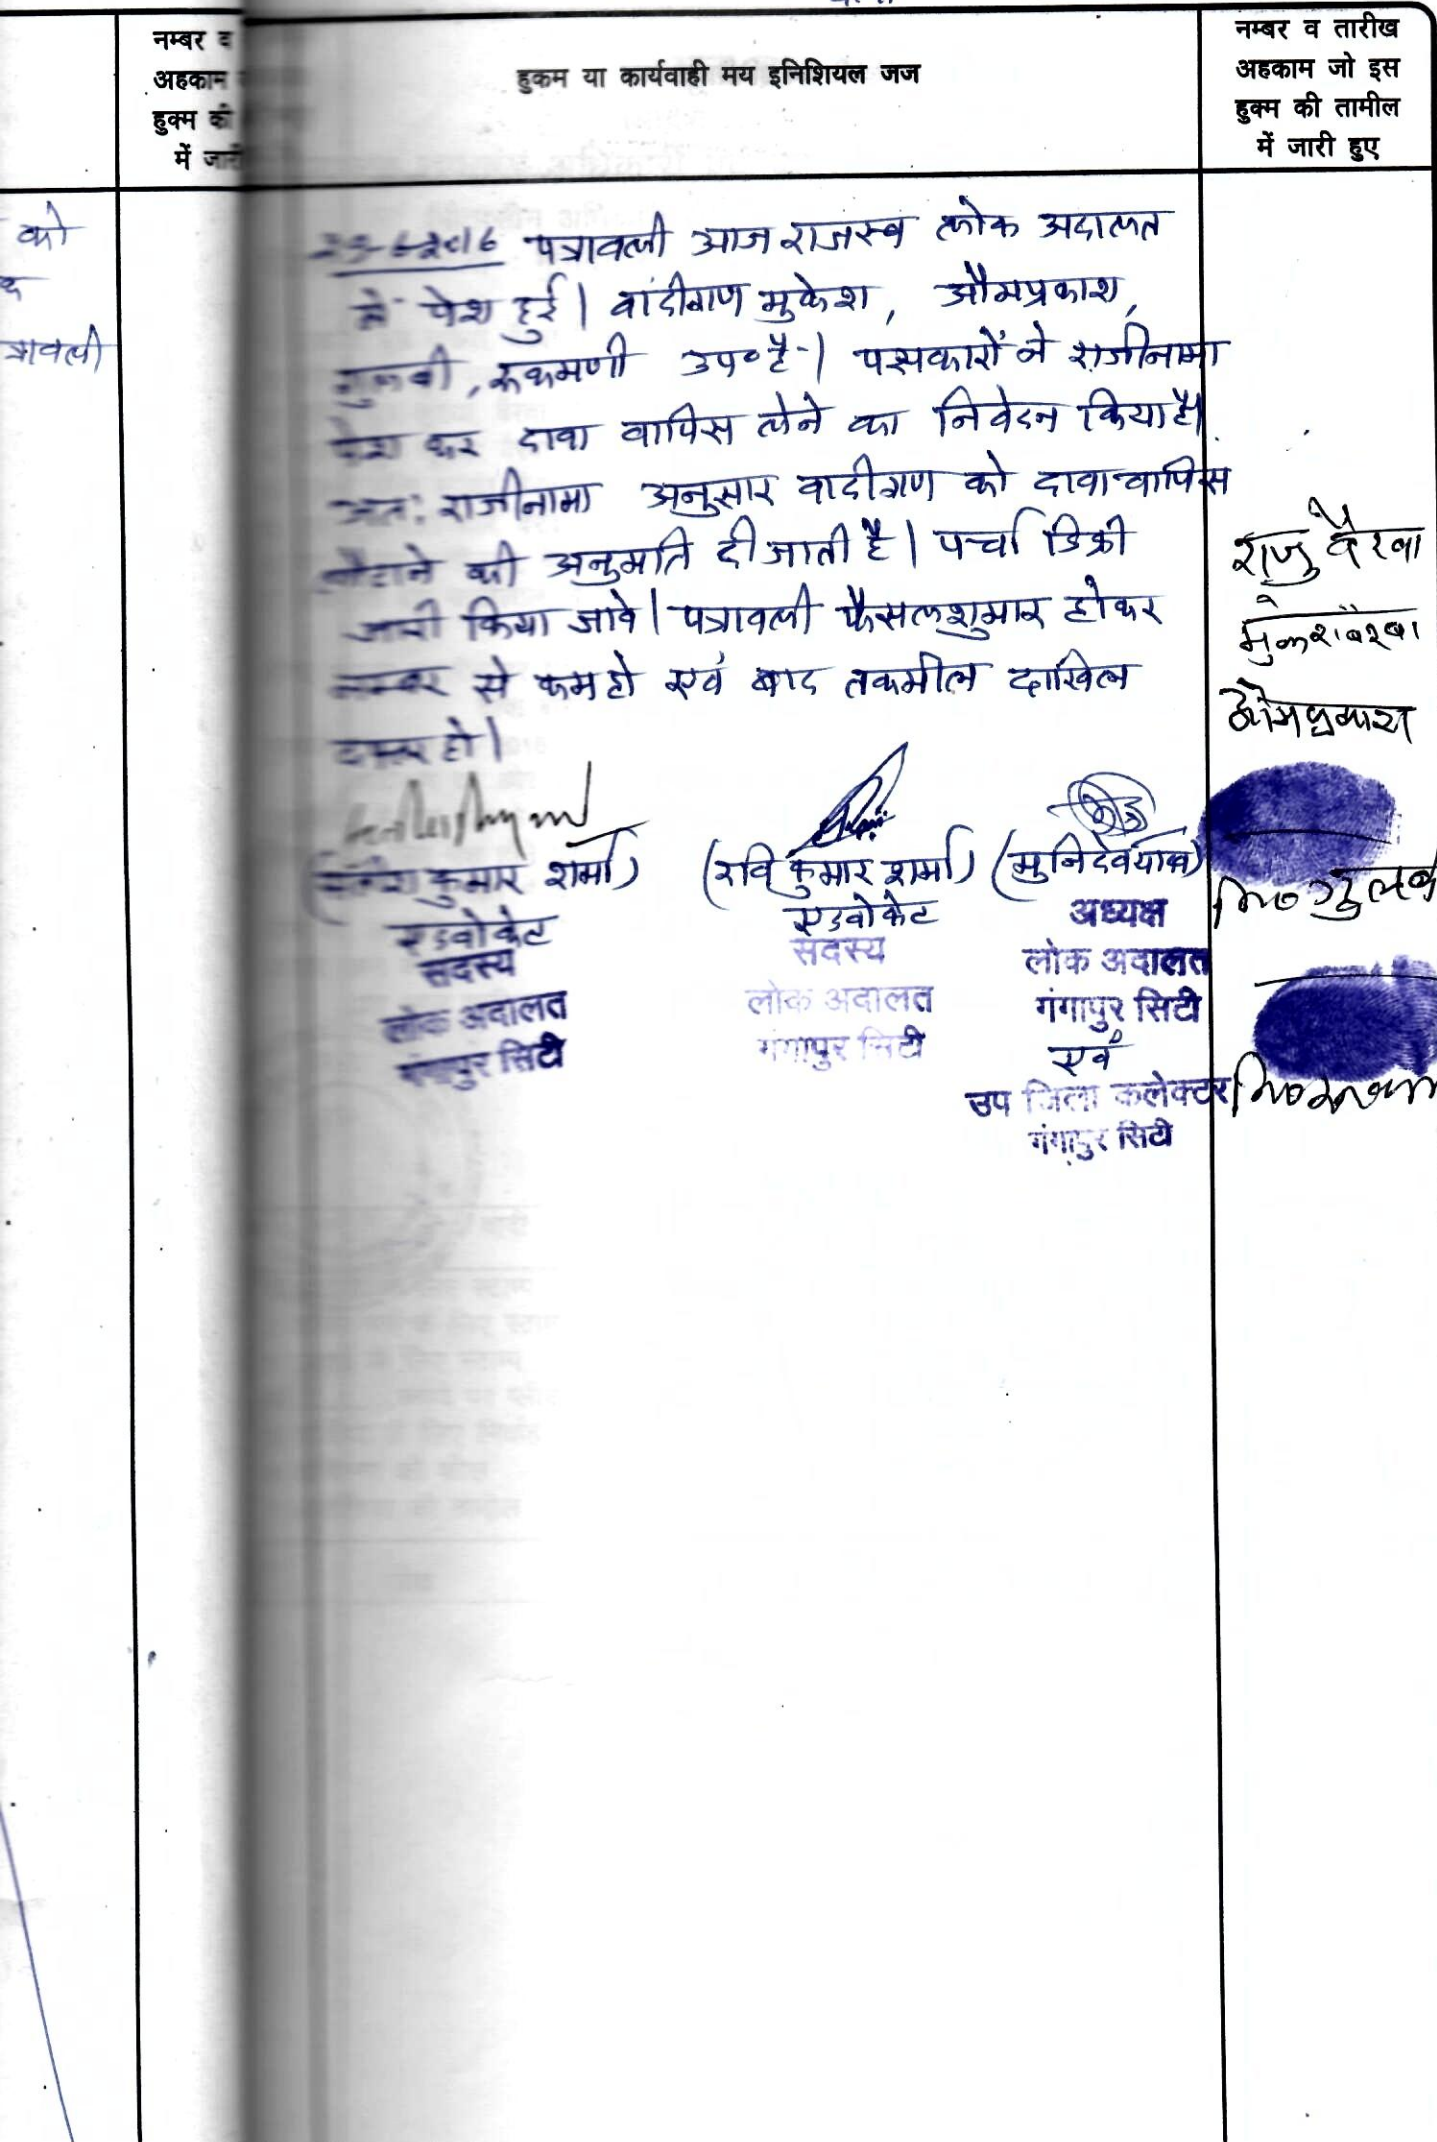 नम्बर व
अहकाम
हुक्म की
में जारी
को
त्रावली
हुकम या कार्यवाही मय इनिशियल जज
नम्बर व तारीख
अहकाम जो इस
हुक्म की तामील
में जारी हुए
6-2016 पत्रावली आज राजस्व लोक अदालत
में पेश हुई। वादीगण मुकेश, औमप्रकाश,
गुलबी, रुकमणी उप० है। पक्षकारों ने राजीनामा
पेश कर दावा वापिस लेने का निवेदन किया है।
अतः राजीनामा अनुसार वादीगण को दावा वापिस
लौटाने की अनुमति दी जाती है। पर्चा डिक्री
जारी किया जावे। पत्रावली फैसलशुमार होकर
नम्बर से कम हो एवं बाद तकमील दाखिल
दफ्तर हो।
राजु बैरवा
मुकेश बैरवा
ओमप्रकाश
कुमार शर्मा)
एडवोकेट
सदस्य
लोक अदालत
गंगापुर सिटी
(रवि कुमार शर्मा)
एडवोकेट
सदस्य
लोक अदालत
गंगापुर सिटी
(मुनिदेव यादव)
अध्यक्ष
लोक अदालत
गंगापुर सिटी
एवं
उप जिला कलेक्टर
गंगापुर सिटी
नि० गुलब